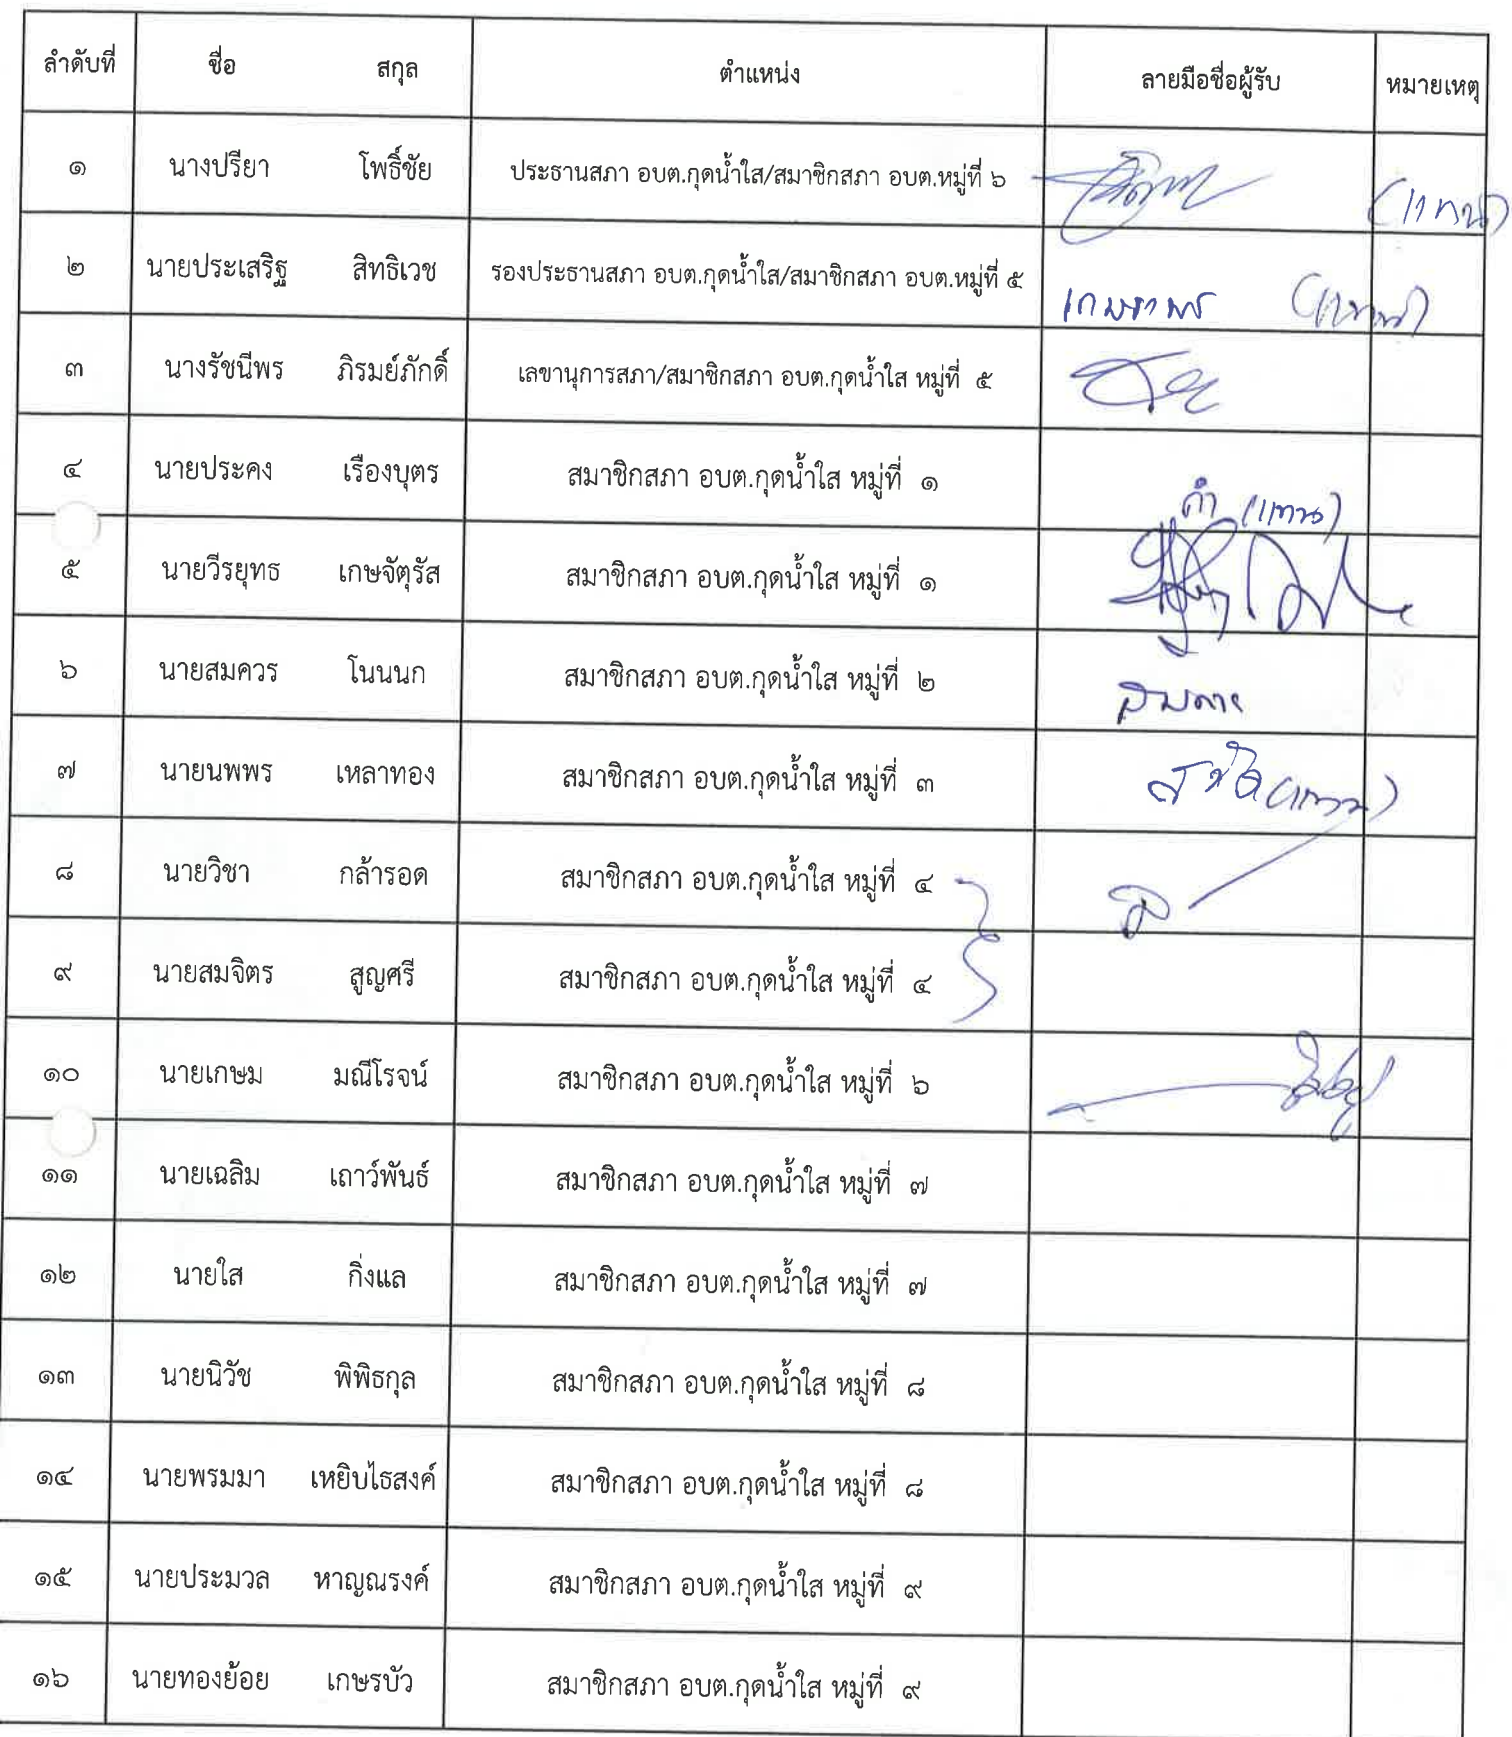 ลำดับที่ ชื่อ สกุล ตำแหน่ง ลายมือชื่อผู้รับ หมายเหตุ
๑ นางปรียา โพธิ์ชัย ประธานสภา อบต.กุดน้ำใส/สมาชิกสภา อบต.หมู่ที่ ๖ (แทน)
๒ นายประเสริฐ สิทธิเวช รองประธานสภา อบต.กุดน้ำใส/สมาชิกสภา อบต.หมู่ที่ ๕ (แทน)
๓ นางรัชนีพร ภิรมย์ภักดิ์ เลขานุการสภา/สมาชิกสภา อบต.กุดน้ำใส หมู่ที่ ๕
๔ นายประคง เรืองบุตร สมาชิกสภา อบต.กุดน้ำใส หมู่ที่ ๑ (แทน)
๕ นายวีรยุทธ เกษจัตุรัส สมาชิกสภา อบต.กุดน้ำใส หมู่ที่ ๑
๖ นายสมควร โนนนก สมาชิกสภา อบต.กุดน้ำใส หมู่ที่ ๒
๗ นายนพพร เหลาทอง สมาชิกสภา อบต.กุดน้ำใส หมู่ที่ ๓ (แทน)
๘ นายวิชา กล้ารอด สมาชิกสภา อบต.กุดน้ำใส หมู่ที่ ๔
๙ นายสมจิตร สูญศรี สมาชิกสภา อบต.กุดน้ำใส หมู่ที่ ๔
๑๐ นายเกษม มณีโรจน์ สมาชิกสภา อบต.กุดน้ำใส หมู่ที่ ๖
๑๑ นายเฉลิม เถาว์พันธ์ สมาชิกสภา อบต.กุดน้ำใส หมู่ที่ ๗
๑๒ นายใส กิ่งแล สมาชิกสภา อบต.กุดน้ำใส หมู่ที่ ๗
๑๓ นายนิวัช พิพิธกุล สมาชิกสภา อบต.กุดน้ำใส หมู่ที่ ๘
๑๔ นายพรมมา เหยิบไธสงค์ สมาชิกสภา อบต.กุดน้ำใส หมู่ที่ ๘
๑๕ นายประมวล หาญณรงค์ สมาชิกสภา อบต.กุดน้ำใส หมู่ที่ ๙
๑๖ นายทองย้อย เกษรบัว สมาชิกสภา อบต.กุดน้ำใส หมู่ที่ ๙